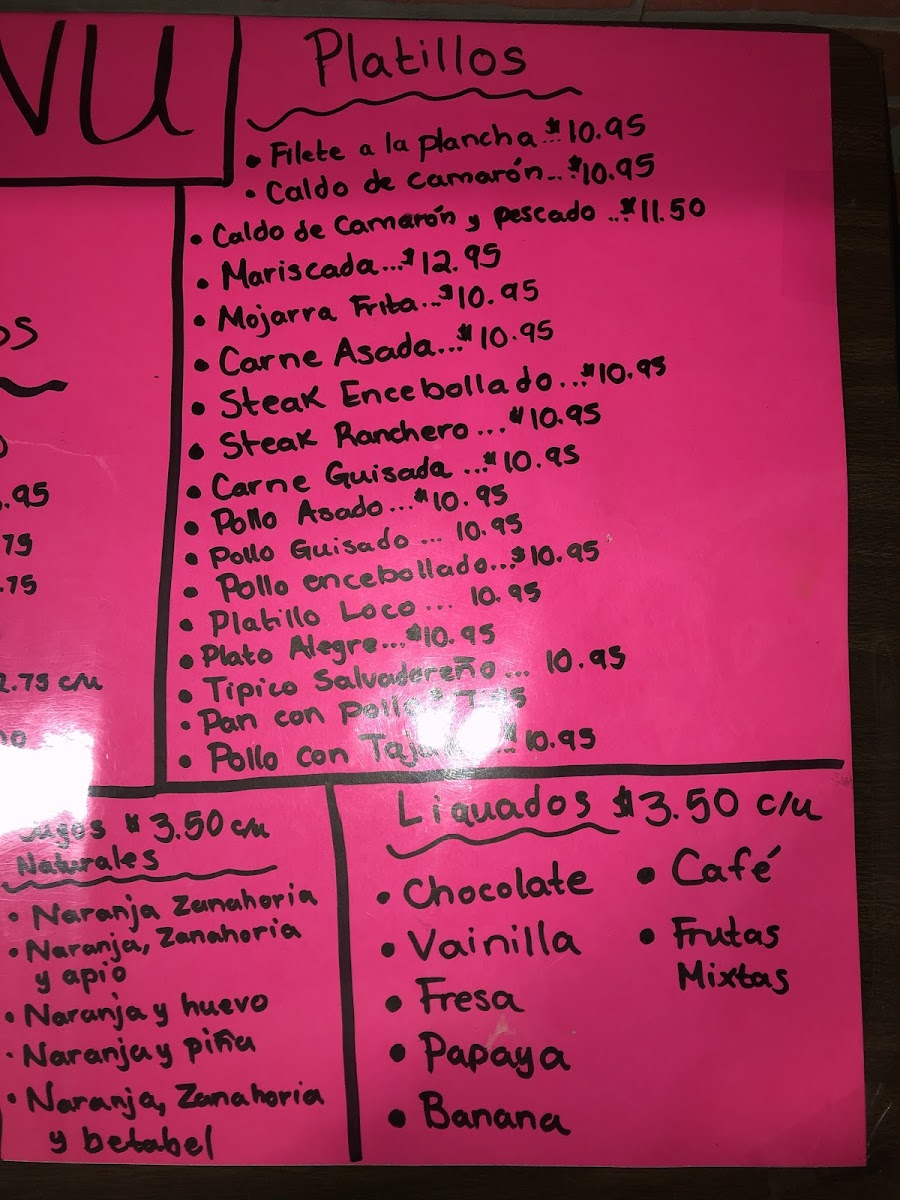 NU
Platillos
• Filete a la plancha $10.95
• Caldo de camarón... $10.95
• Caldo de Camarón y pescado ...$11.50
• Mariscada...$12.95
• Mojarra Frita...$10.95
• Carne Asada...$10.95
• Steak Encebollado...$10.95
• Steak Ranchero ...$10.95
• Carne Guisada ...$10.95
• Pollo Asado ...$10.95
• Pollo Guisado ... 10.95
• Pollo encebollado...$10.95
• Platillo Loco ... 10.95
• Plato Alegre...$10.95
• Tipico Salvadoreño ... 10.95
• Pan con Pollo
• Pollo con $10.95
os
.95
75
.75
2.75 c/u
Jugos $3.50 c/u
Naturales
• Naranja Zanahoria
• Naranja, Zanahoria
y apio
• Naranja y huevo
• Naranja y piña
• Naranja, Zanahoria
y betabel
Liquados $3.50 c/u
• Chocolate
• Vainilla
• Fresa
• Papaya
• Banana
• Café
• Frutas
Mixtas